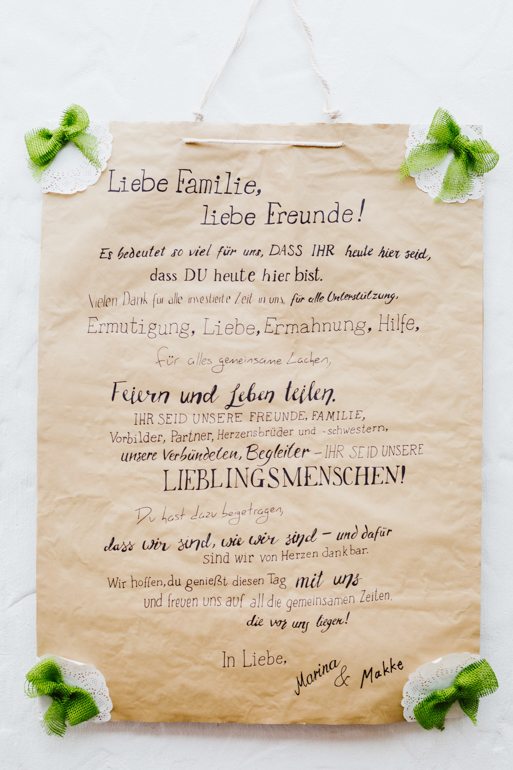 Liebe Familie,
liebe Freunde!
Es bedeutet so viel für uns, DASS IHR heute hier seid,
dass DU heute hier bist.
Vielen Dank für alle investierte Zeit in uns, für alle Unterstützung,
Ermutigung, Liebe, Ermahnung, Hilfe,
für alles gemeinsame Lachen,
Feiern und Leben teilen.
IHR SEID UNSERE FREUNDE, FAMILIE,
Vorbilder, Partner, Herzensbrüder und -schwestern,
unsere Verbündeten, Begleiter – IHR SEID UNSERE
LIEBLINGSMENSCHEN!
Du hast dazu beigetragen,
dass wir sind, wie wir sind – und dafür
sind wir von Herzen dankbar.
Wir hoffen, du genießt diesen Tag mit uns
und freuen uns auf all die gemeinsamen Zeiten,
die vor uns liegen!
In Liebe,
Marina & Makke